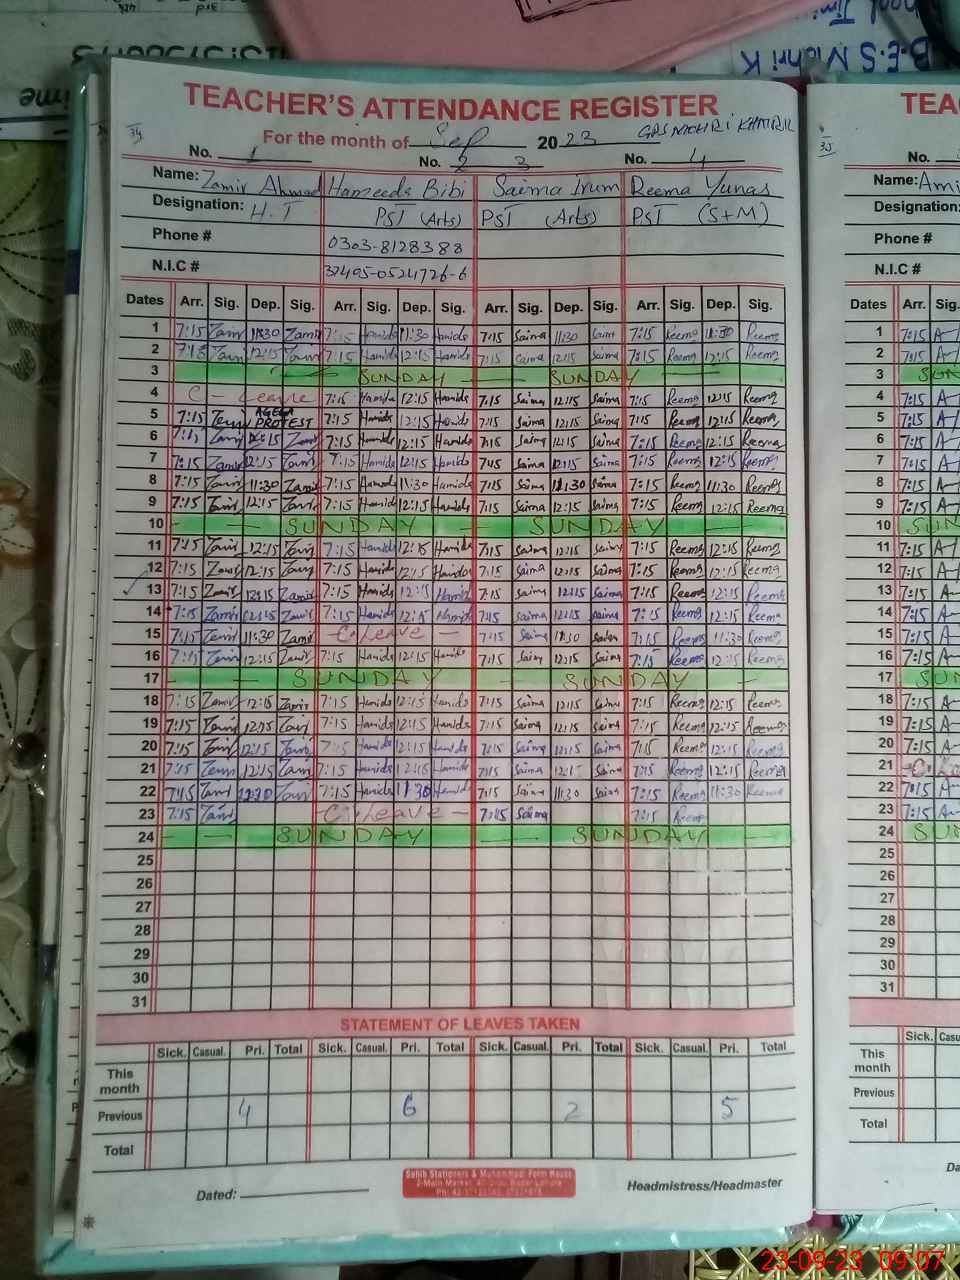 TEACHER'S ATTENDANCE REGISTER
For the month of Sep 2023 GPS MOHRI KHATRIL
34
No. 1 No. 2 3 No. 4
Name: Zamir Ahmad Hameeda Bibi Saima Irum Reema Yunas
Designation: H.T PST (Arts) PST (Arts) PST (S+M)
Phone # 0303-8128388
N.I.C # 37405-0524726-6
Dates Arr. Sig. Dep. Sig. Arr. Sig. Dep. Sig. Arr. Sig. Dep. Sig. Arr. Sig. Dep. Sig.
1 7:15 Zamir 11:30 Zamir 7:15 Hamida 11:30 Hamida 7:15 Saima 11:30 Saima 7:15 Reema 11:30 Reema
2 7:15 Zamir 12:15 Zamir 7:15 Hamida 12:15 Hamida 7:15 Saima 12:15 Saima 7:15 Reema 12:15 Reema
3 SUNDAY SUNDAY
4 C - Leave 7:15 Hamida 12:15 Hamida 7:15 Saima 12:15 Saima 7:15 Reema 12:15 Reema
5 7:15 Zamir AGEGA PROTEST 7:15 Hamida 12:15 Hamida 7:15 Saima 12:15 Saima 7:15 Reema 12:15 Reema
6 7:15 Zamir 12:15 Zamir 7:15 Hamida 12:15 Hamida 7:15 Saima 12:15 Saima 7:15 Reema 12:15 Reema
7 7:15 Zamir 12:15 Zamir 7:15 Hamida 12:15 Hamida 7:15 Saima 12:15 Saima 7:15 Reema 12:15 Reema
8 7:15 Zamir 11:30 Zamir 7:15 Hamida 11:30 Hamida 7:15 Saima 11:30 Saima 7:15 Reema 11:30 Reema
9 7:15 Zamir 12:15 Zamir 7:15 Hamida 12:15 Hamida 7:15 Saima 12:15 Saima 7:15 Reema 12:15 Reema
10 SUNDAY SUNDAY
11 7:15 Zamir 12:15 Zamir 7:15 Hamida 12:15 Hamida 7:15 Saima 12:15 Saima 7:15 Reema 12:15 Reema
12 7:15 Zamir 12:15 Zamir 7:15 Hamida 12:15 Hamida 7:15 Saima 12:15 Saima 7:15 Reema 12:15 Reema
13 7:15 Zamir 12:15 Zamir 7:15 Hamida 12:15 Hamida 7:15 Saima 12:15 Saima 7:15 Reema 12:15 Reema
14 7:15 Zamir 12:15 Zamir 7:15 Hamida 12:15 Hamida 7:15 Saima 12:15 Saima 7:15 Reema 12:15 Reema
15 7:15 Zamir 11:30 Zamir - C. Leave - 7:15 Saima 11:30 Saima 7:15 Reema 11:30 Reema
16 7:15 Zamir 12:15 Zamir 7:15 Hamida 12:15 Hamida 7:15 Saima 12:15 Saima 7:15 Reema 12:15 Reema
17 SUNDAY SUNDAY
18 7:15 Zamir 12:15 Zamir 7:15 Hamida 12:15 Hamida 7:15 Saima 12:15 Saima 7:15 Reema 12:15 Reema
19 7:15 Zamir 12:15 Zamir 7:15 Hamida 12:15 Hamida 7:15 Saima 12:15 Saima 7:15 Reema 12:15 Reema
20 7:15 Zamir 12:15 Zamir 7:15 Hamida 12:15 Hamida 7:15 Saima 12:15 Saima 7:15 Reema 12:15 Reema
21 7:15 Zamir 12:15 Zamir 7:15 Hamida 12:15 Hamida 7:15 Saima 12:15 Saima 7:15 Reema 12:15 Reema
22 7:15 Zamir 11:30 Zamir 7:15 Hamida 11:30 Hamida 7:15 Saima 11:30 Saima 7:15 Reema 11:30 Reema
23 7:15 Zamir C. Leave - 7:15 Saima 7:15 Reema
24 SUNDAY SUNDAY
25
26
27
28
29
30
31
STATEMENT OF LEAVES TAKEN
Sick. Casual. Pri. Total Sick. Casual. Pri. Total Sick. Casual. Pri. Total Sick. Casual. Pri. Total
This month
Previous 4 6 2 5
Total
Sahib Stationers & Muhammadi Form House
2-Main Market, Urdu Bazar Lahore
Dated: Headmistress/Headmaster
35
No.
Name: Ami
Designation:
Phone #
N.I.C #
Dates Arr. Sig.
1 7:15
2 7:15
3 SUN
4 7:15
5 7:15
6 7:15
7 7:15
8 7:15
9 7:15
10 SUN
11 7:15
12 7:15
13 7:15
14 7:15
15 7:15
16 7:15
17 SUN
18 7:15
19 7:15
20 7:15
21
22 7:15
23 7:15
24
25
26
27
28
29
30
31
Sick.
This month
Previous
Total
23-09-23 09:07